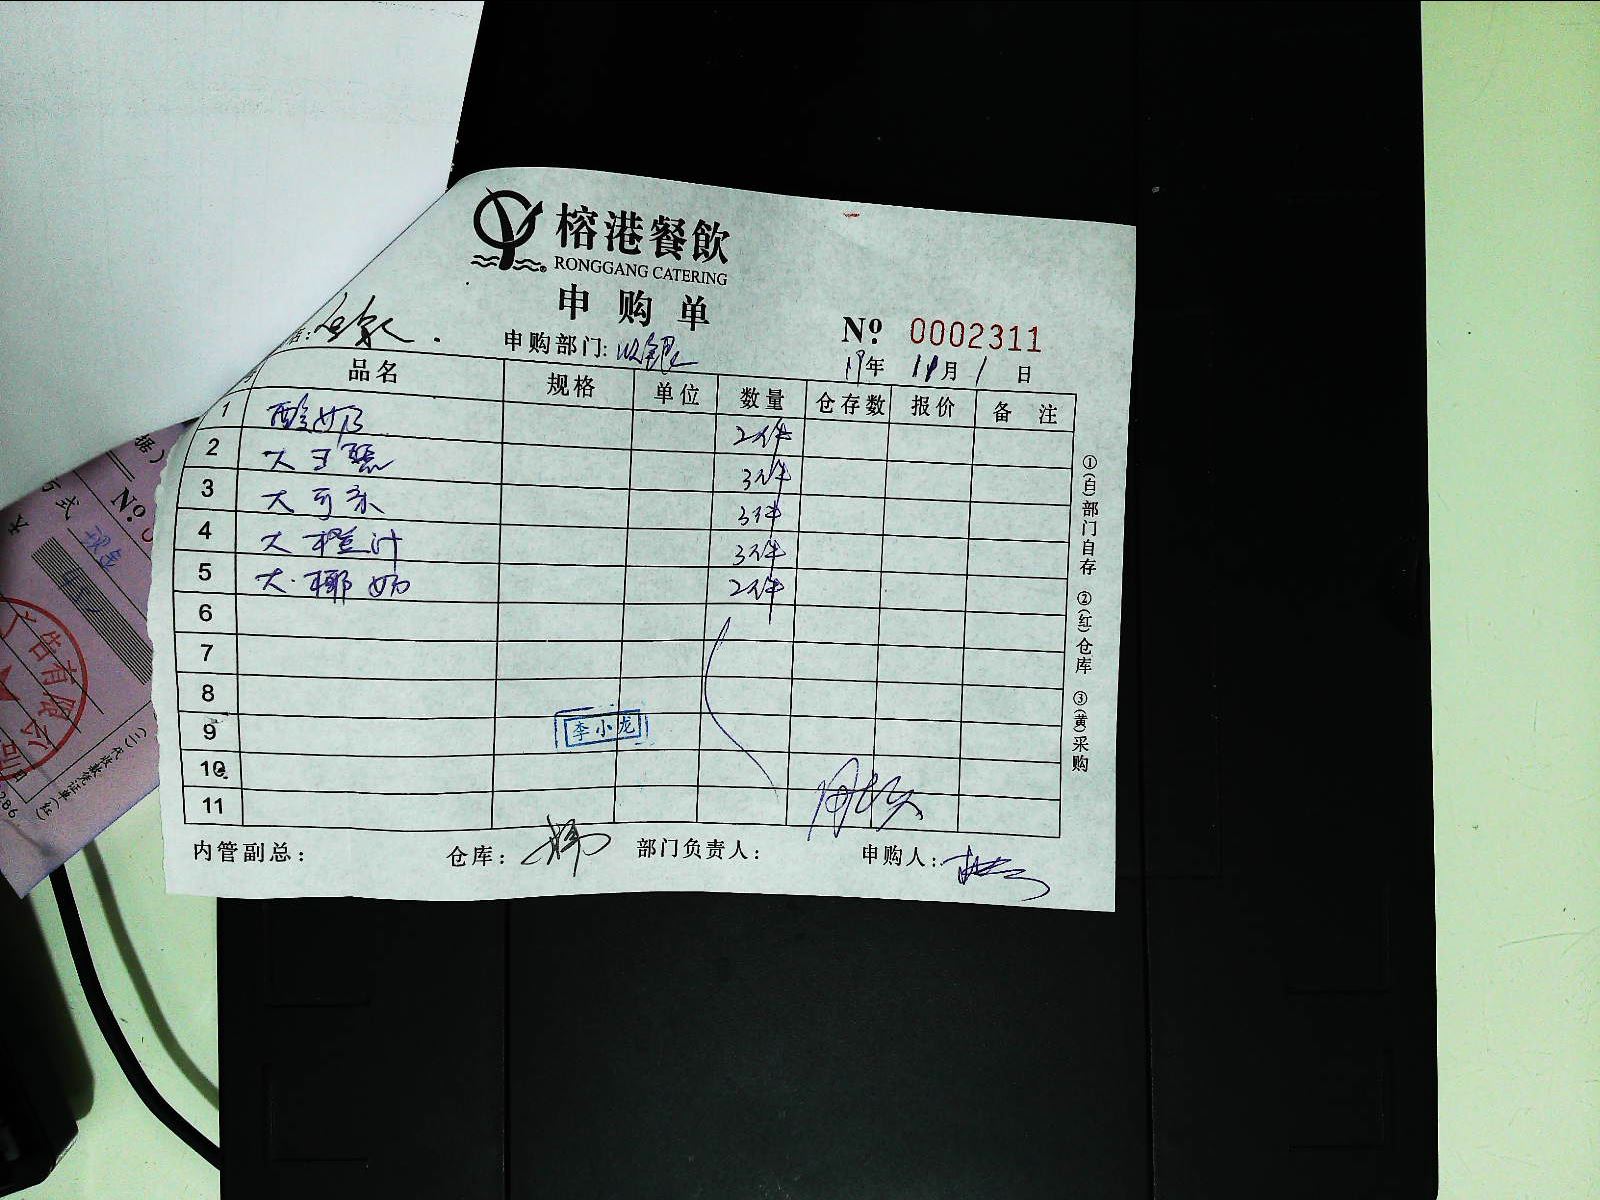 榕港餐飲
RONGGANG CATERING
申购单
№ 0002311
申购部门: 收银
19年 11月 1日
品名 规格 单位 数量 仓存数 报价 备注
1 酸奶 2件
2 大王老吉 3件
3 大可乐 3件
4 大橙汁 3件
5 大椰奶 2件
6
7
8
9
李小龙
10
11
内管副总: 仓库: 部门负责人: 申购人:
①(白)部门自存 ②(红)仓库 ③(黄)采购
据)
№
方式 现金
广告有限公司
(二)代收款凭证单(红)
286